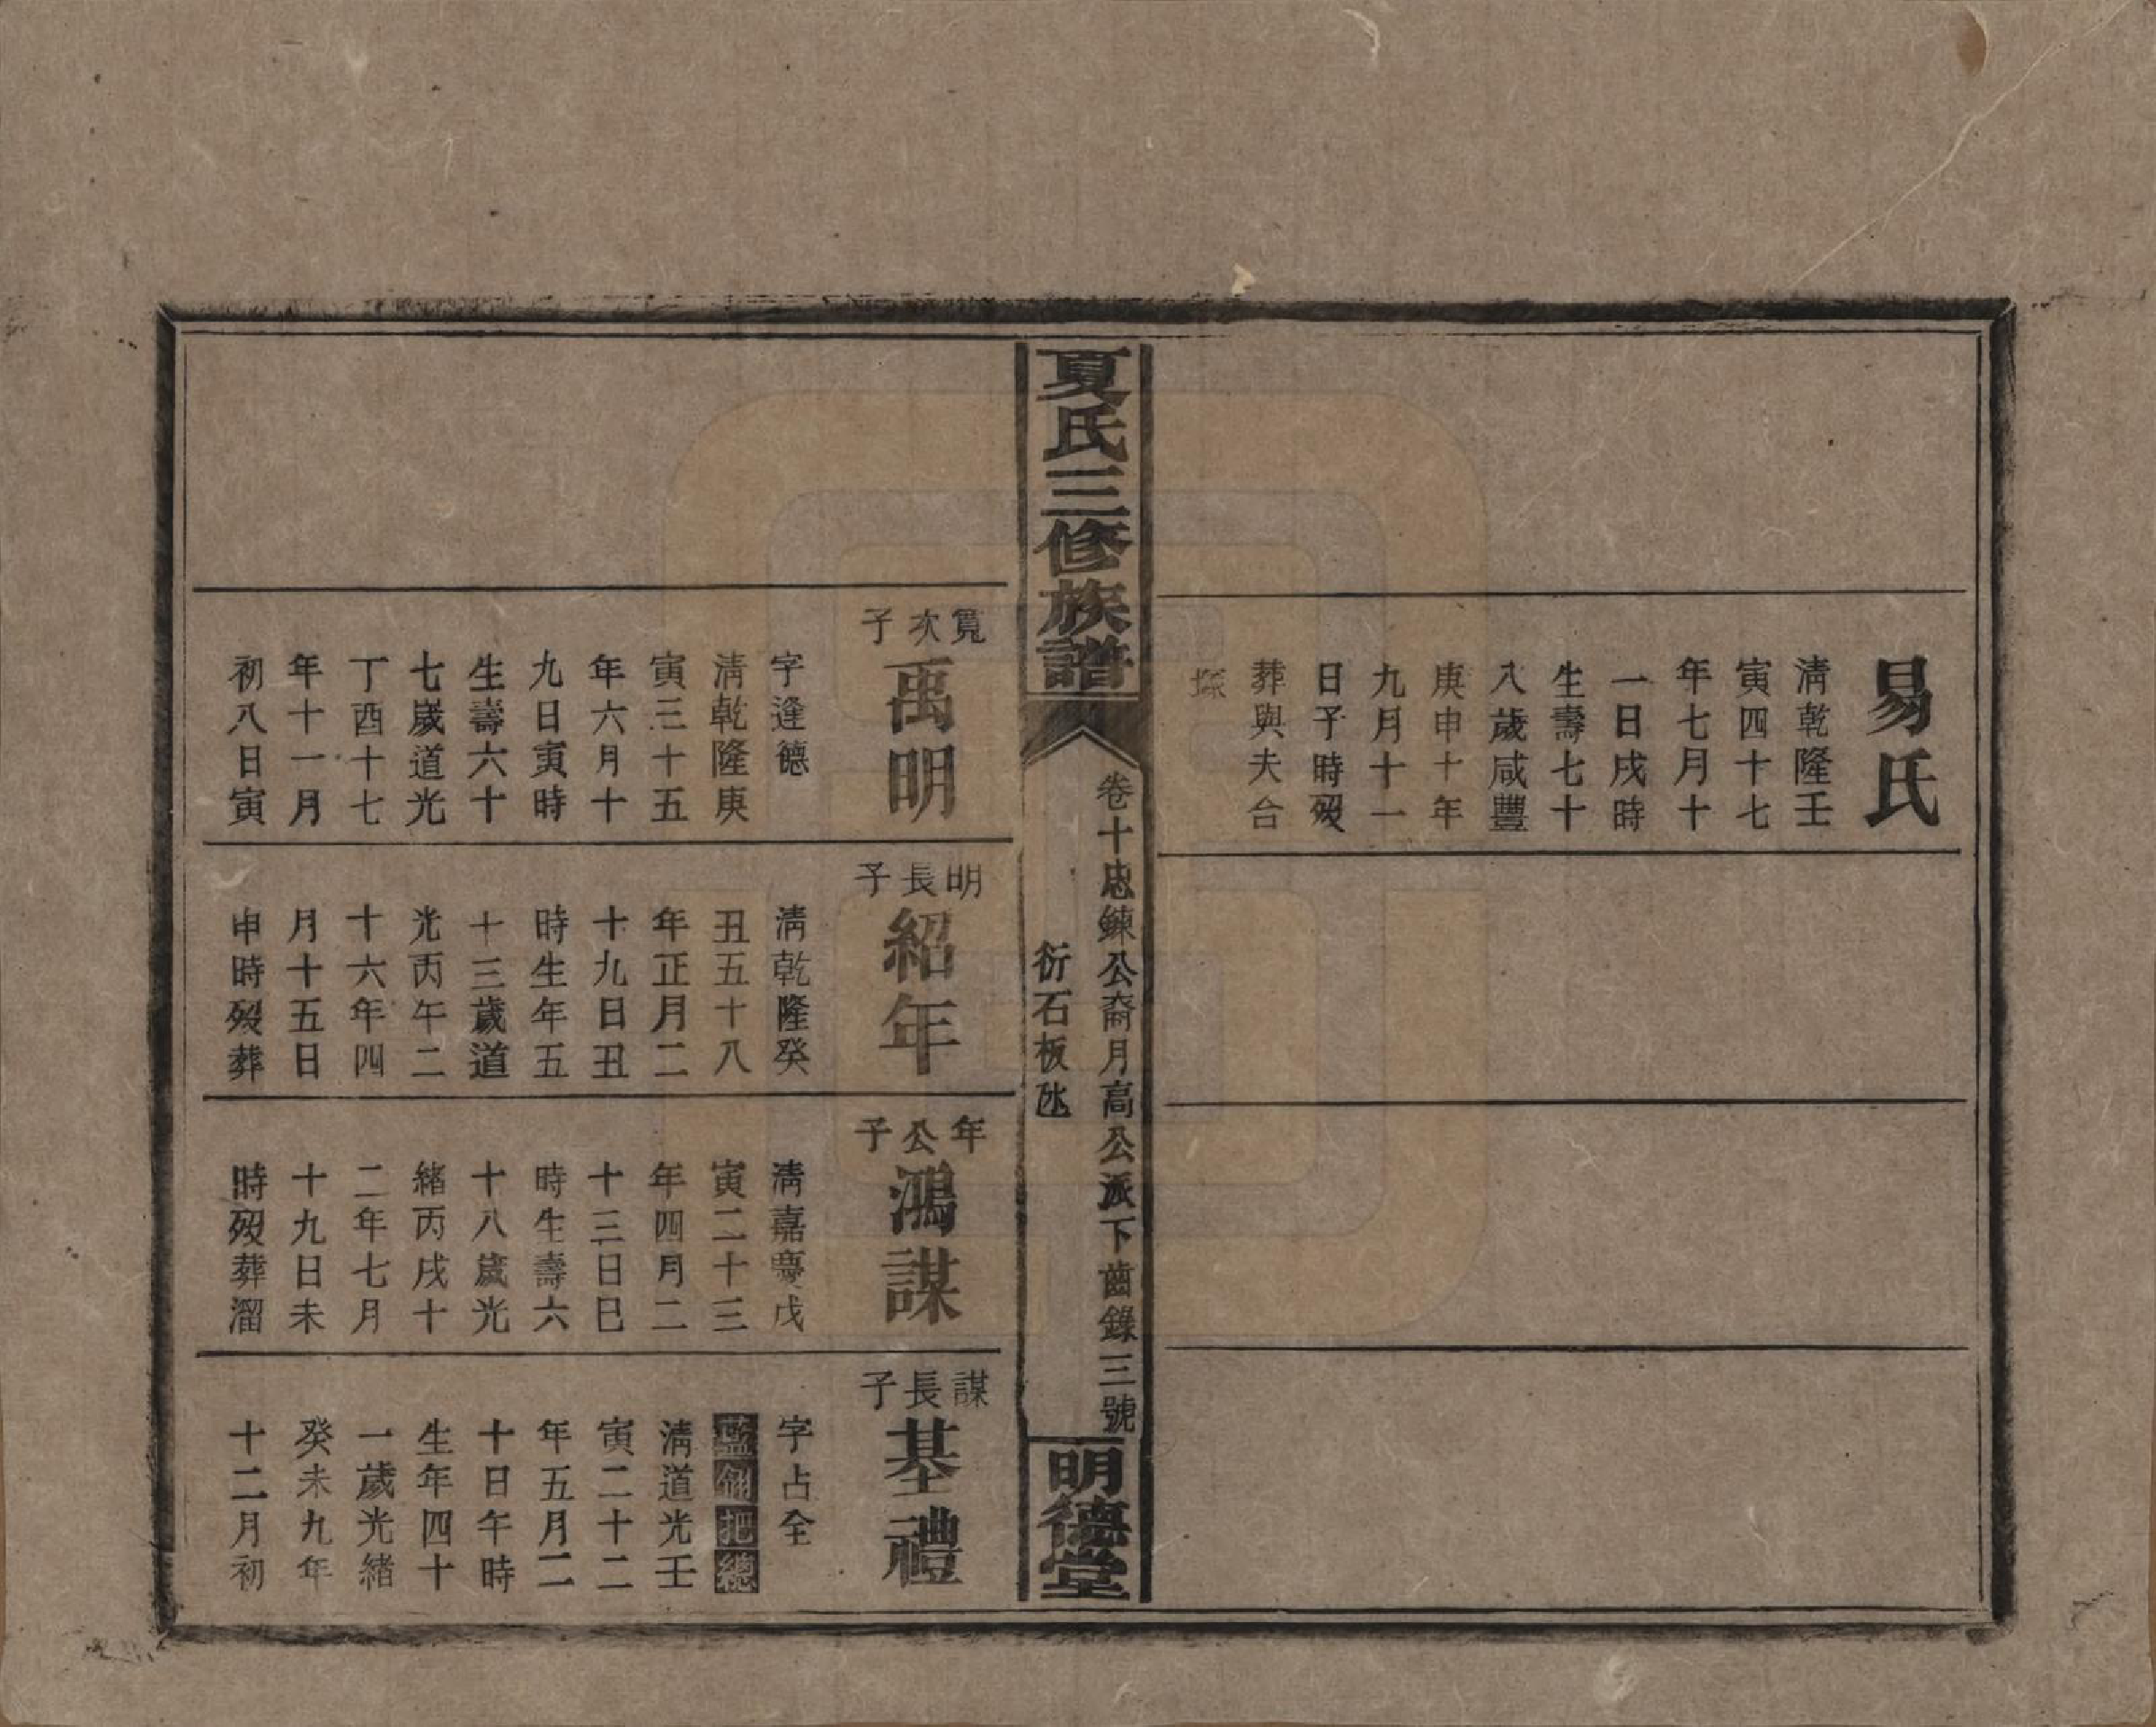 易氏
清乾隆壬
寅四十七
年七月十
一日戌時
生壽七十
八歲咸豐
庚申十年
九月十一
日子時歿
葬與夫合
塚
夏氏三修族譜
卷十忠鍊公裔月高公派下齒錄三號
衍石板氹
明德堂
寬次子
禹明
字逢德
清乾隆庚
寅三十五
年六月十
九日寅時
生壽六十
七歲道光
丁酉十七
年十一月
初八日寅
明長子
紹年
清乾隆癸
丑五十八
年正月二
十九日丑
時生年五
十三歲道
光丙午二
十六年四
月十五日
申時歿葬
年公子
鴻謀
清嘉慶戊
寅二十三
年四月二
十三日巳
時生壽六
十八歲光
緒丙戌十
二年七月
十九日未
時歿葬溜
謀長子
基禮
字占全
藍翎把總
清道光壬
寅二十二
年五月二
十日午時
生年四十
一歲光緒
癸未九年
十二月初